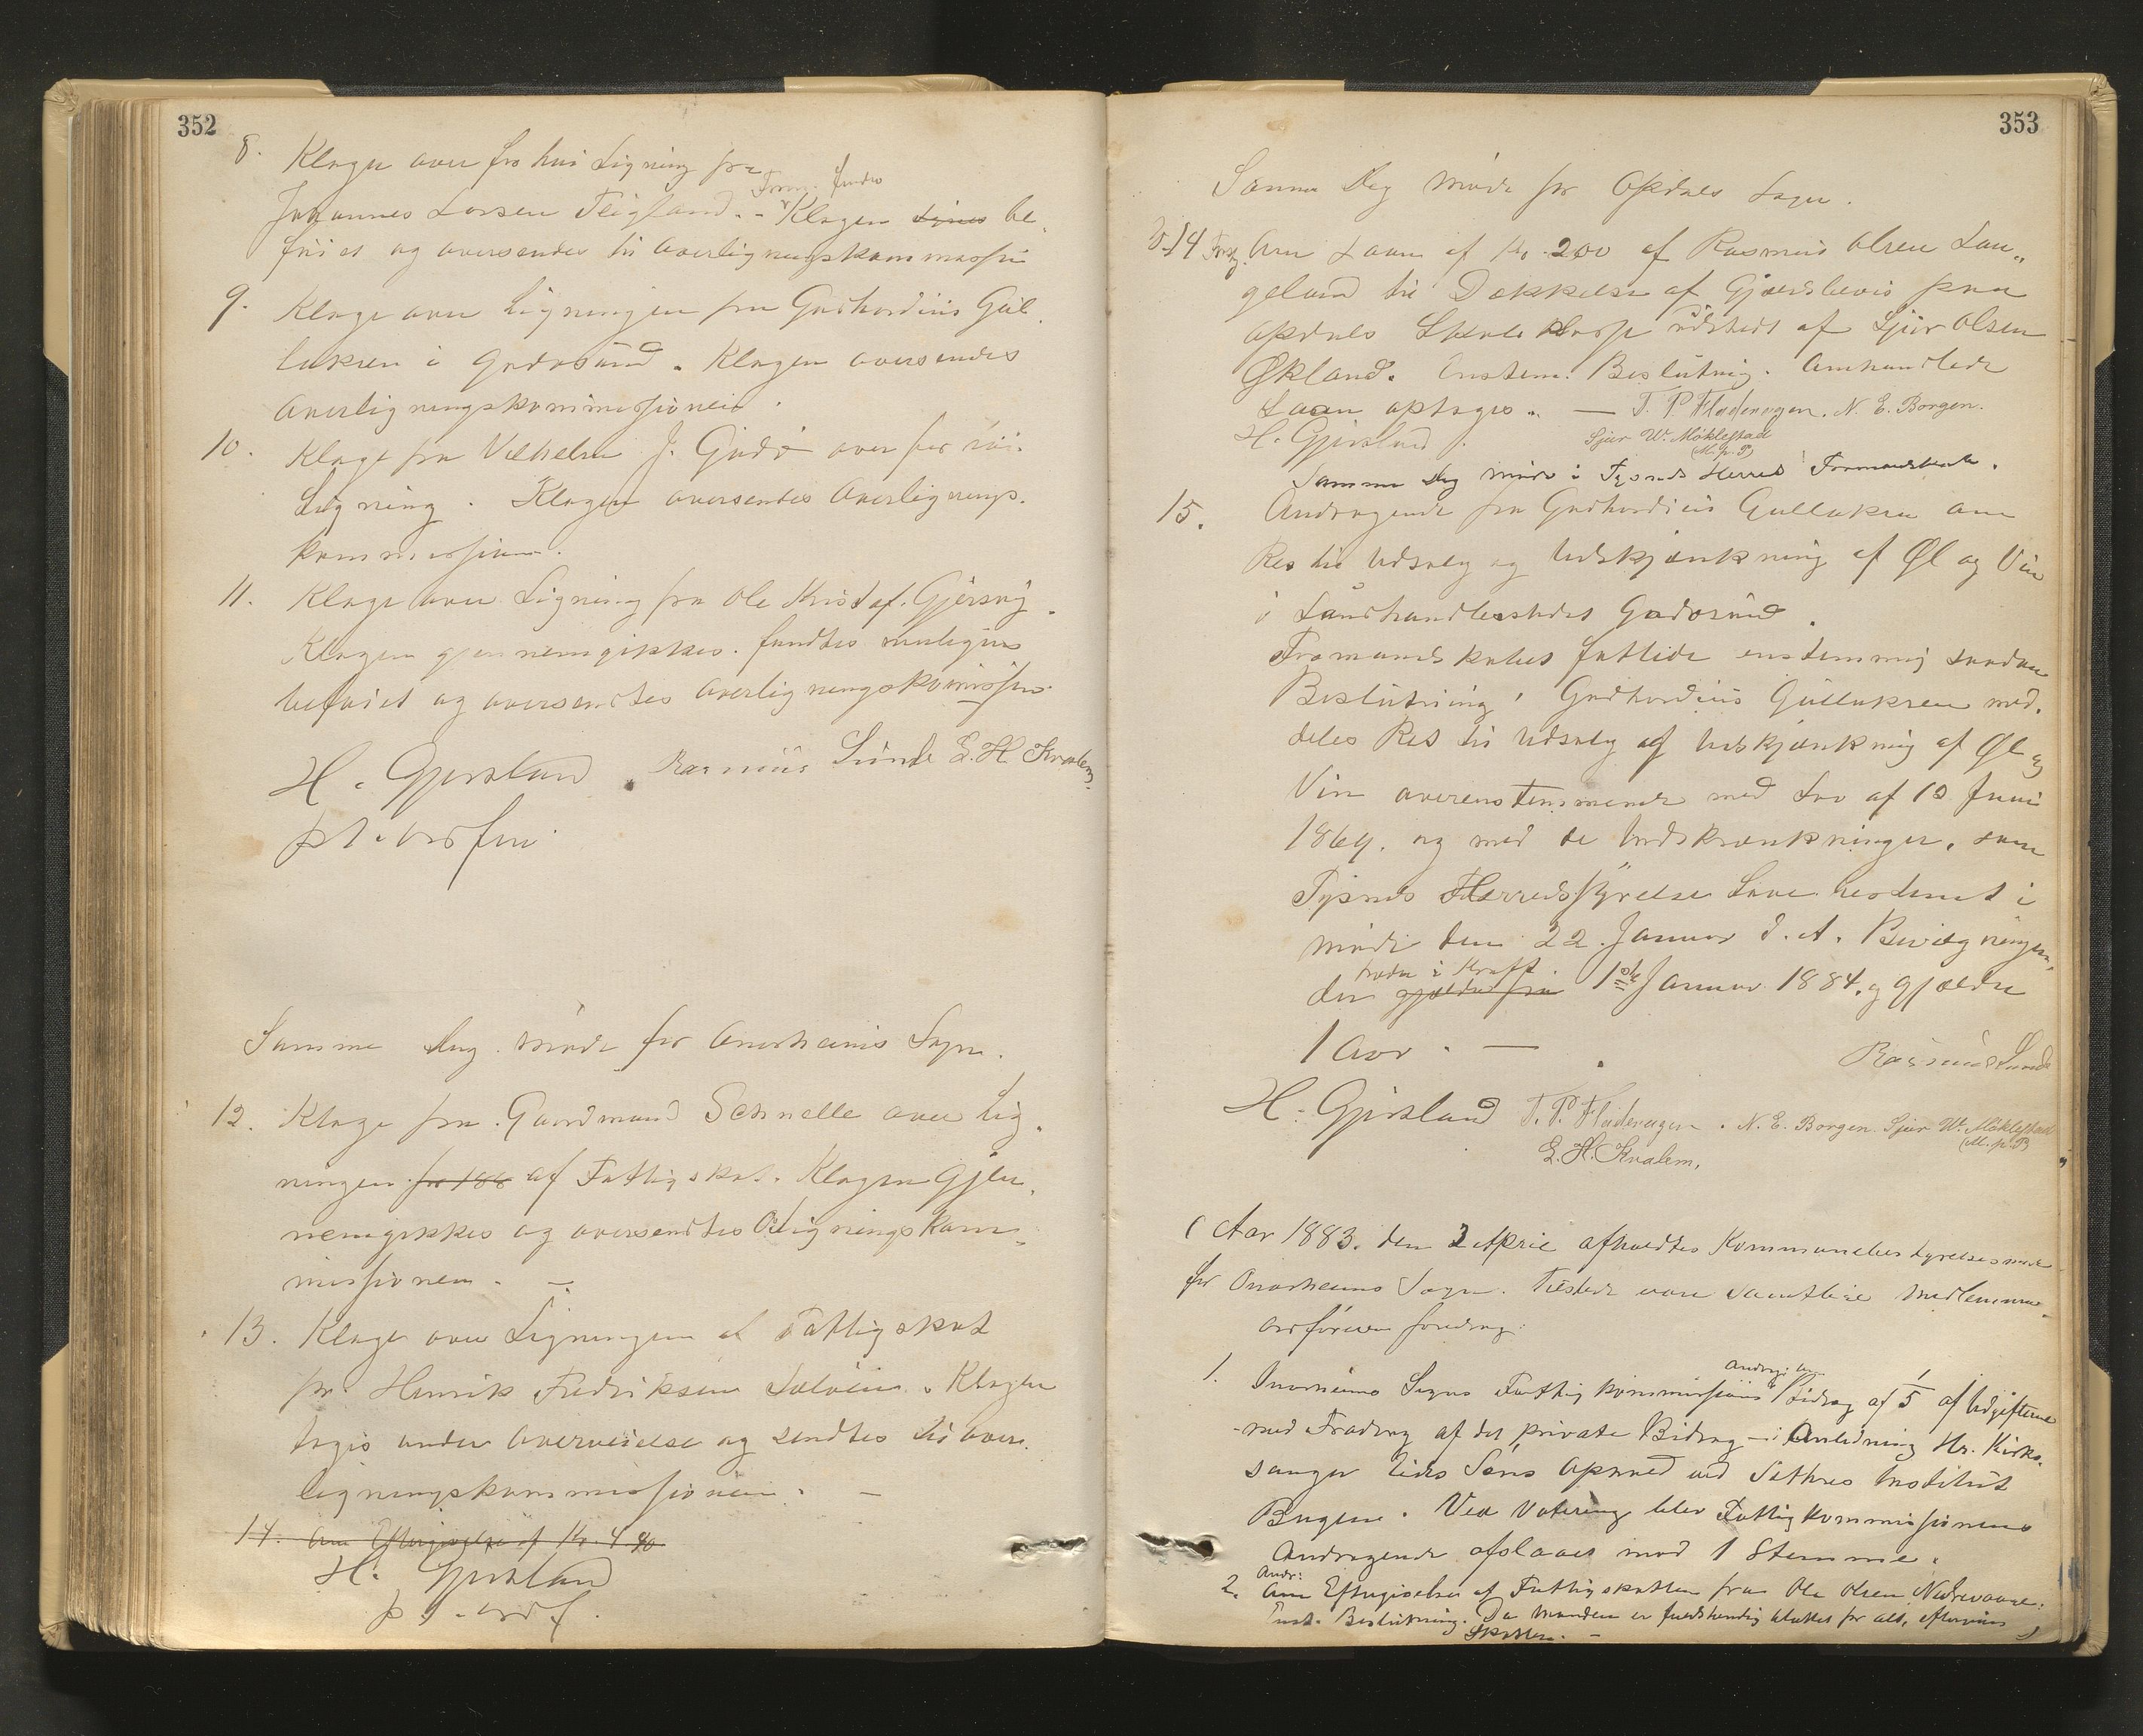 352
8. Klage over for høi Ligning fra
Form. fandt
Johannes Larsen Teigland. - Klagen be-
føiet og oversendes til Overligningskommissio
9. Klage over Ligningen fra Godhardius Gul-
laksen i Godøsund. Klagen oversendes
Overligningskommissionen.
10. Klage fra Vilhelm J. Godø over for høi
Ligning. Klagen oversendes Overlignings-
kommissionen.
11. Klage over Ligning fra Ole Kristof. Gjersvig.
Klagen gjennemgikkes. fandtes
beføiet og oversendtes Overligningskommissio
H. Gjersland. Rasmus Sunde E. H. Kvalem.
pt. ordfører
Samme Dag møde for Onarheims Sogn.
12. Klage fra Gaardmand Schnelle over Lig-
ningen for 188 af Fattigskat. Klagen gjen-
nemgikkes og oversendtes Oligningskom-
missionen. -
13. Klage over Ligningen af Fattigskat
fra Henrik Fredriksen Klagen
toges under Overveielse og sendtes til Over-
ligningskommissionen. -
14. Om Eftergivelse af Kr. 4.40
H. Gjersland
pt. ordf.
353
Samme Dag møde for Opdals Sogn.
14 Om Laan af Kr. 200 af Rasmus Olsen Lan-
geland til Dækkelse af Gjældsbevis paa
Opdals Skolekasse udstedt af Sjur Olsen
Økland. Enstem. Beslutning. Omhandlede
Laan optages. — T. P. Fladeragen. N. E. Borgen.
H. Gjersland. Sjur W. Møklestad
(M. p. P)
Samme Dag møde i Tysnes Herreds Formandskab.
15. Andragende fra Godhardius Gullaksen om
Ret til Udsalg og Udskjænkning af Øl og Vin
i Landhandlerstedet Godøsund.
Formandskabet fattede enstemmig saadan
Beslutning: Godhardius Gullaksen med-
deles Ret til Udsalg og Udskjænkning af Øl og
Vin overenstemmende med Lov af 10 Juni
1869. og med de Indskrænkninger, som
Tysnes Herredsstyrelse have bestemt i
møde den 22. Januar d. A. Bevilgningen,
træder i Kraft.
der gjælder fra 1ste Januar 1884. og gjælder
1 Aar. — Rasmus Sunde
H. Gjersland T. P. Fladeragen. N. E. Borgen. Sjur W. Møklestad
E. H. Kvalem. (M. p. P)
Aar 1883. den 2 April afholdtes Kommunebestyrelsesmøde
for Onarheims Sogn. Tilstede vare samtlige Medlemmer.
Ordføreren foredrog:
Andrag: om
1. Onarheims Sogns Fattigkommissions Bidrag af 1/5 af Udgifterne
- med Fradrag af det private Bidrag - i Anledning Hr. Kirke-
sanger Eides Søns Ophold ved Institut
Bergen. Ved Votering blev Fattigkommissionens
Andragende afslaaet mod 1 Stemme.
Andr:
2. Om Eftergivelse af Fattigskatten fra Ole Olsen Nedrevaage:
Enst. Beslutning. Da Manden er fuldstændig blottet for alt, eftergives
Skatten. -